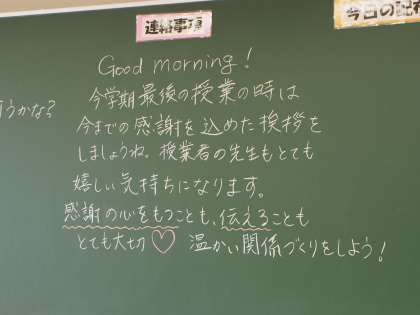 連絡事項
今日の配布
Good morning!
うかな?
今学期最後の授業の時は
今までの感謝を込めた挨拶を
しましょうね。授業者の先生もとても
嬉しい気持ちになります。
感謝の心をもつことも、伝えることも
とても大切♡ 温かい関係づくりをしよう!